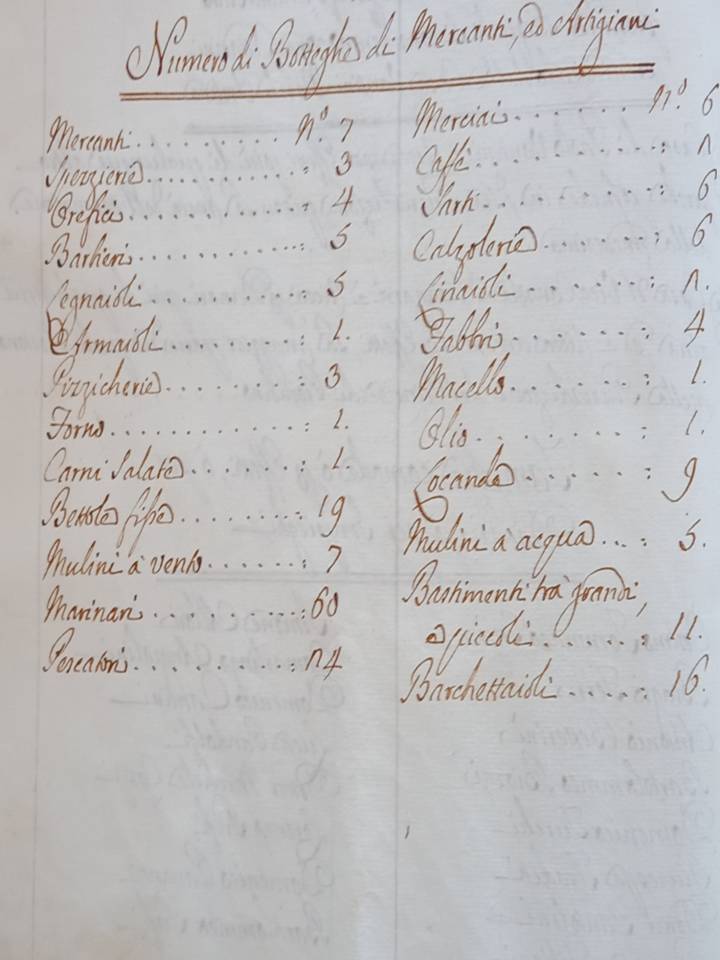 Numero di Botteghe di Mercanti, ed Artigiani
Mercanti . . . . . . . . . . . Nº 7
Spezzierie . . . . . . . . . . : 3
Orefici . . . . . . . . . . . . 4
Barbieri . . . . . . . . . . . : 5
Legnaioli . . . . . . . . . . : 5
. . . . . . . . . : 1.
Pizzicherie . . . . . . . . . : 3
Forno . . . . . . . . . . . . : 1.
Carni Salate . . . . . . . . : 1.
Bettole fisse . . . . . . . . : 19
Mulini a vento . . . . . . . : 7
Marinari . . . . . . . . . . : 60
Pescatori . . . . . . . . . . : 14
Merciai . . . . . . . Nº. 6
Caffè . . . . . . . . . : 1
Sarti . . . . . . . . . : 6
Calzolerie . . . . . . : 6
Linaioli . . . . . . . : 1.
Fabbri . . . . . . . . : 4
Macello . . . . . . . : 1.
Olio . . . . . . . . . : 1.
Locande . . . . . . . : 9
Mulini a acqua . . . : 5.
Bastimenti trà grandi,
e piccoli . . . . . . : 11.
Barchettaioli . . . . : 16.